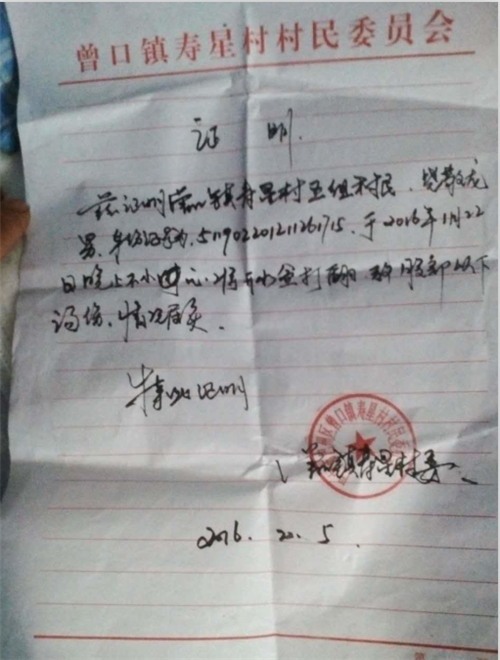 曾口镇寿星村村民委员会
证 明
兹证明曾口镇寿星村五组村民
男,身份证号为:511902201211261715.于2016年1月22
日晚上不小心将开水壶打翻 致 腹部以下
烫伤,情况属实.
特此证明
区曾口镇寿星村村民委
曾口镇寿星村委
2016. 20. 5.